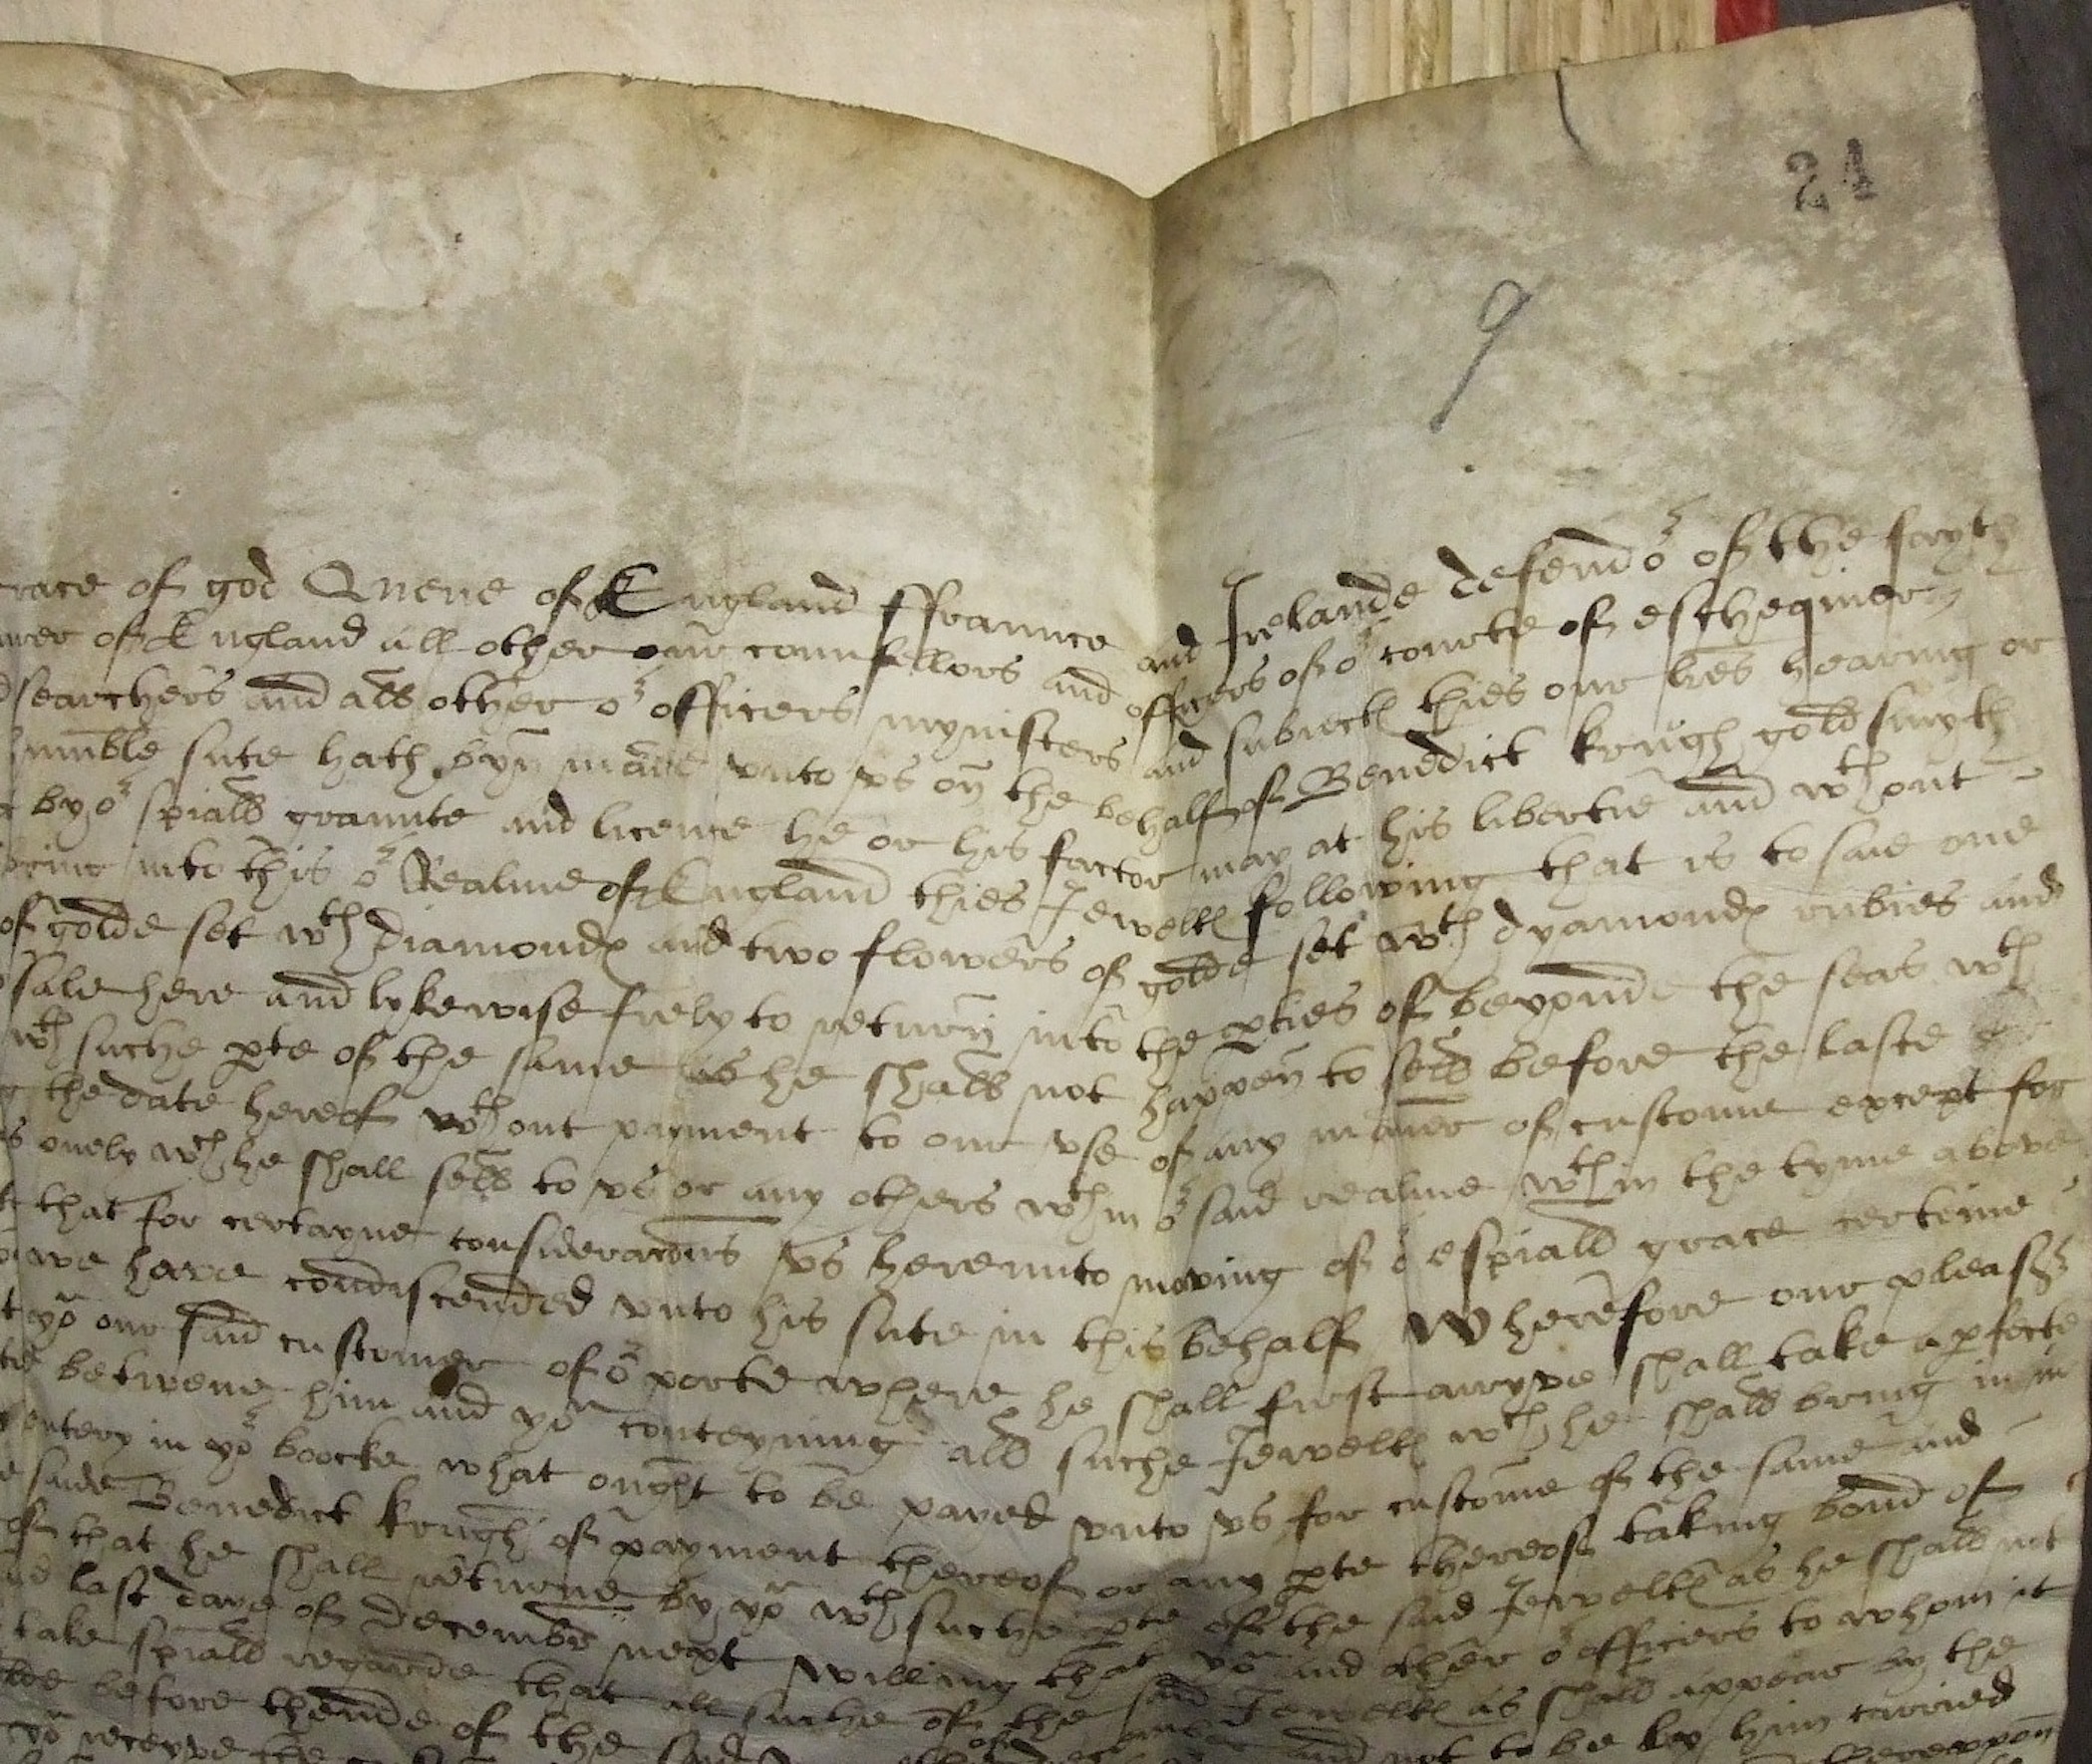 24
9
race of god Quene of England ffraunce and Irelande defendor of the fayth
of England all other our counsellors and officers of or courte of eschequier
searchers and all other or officers mynisters and subiects thies our lres hearing or
humble sute hath byn made vnto vs on the behalf of Benedict krugh goldsmyth
by or spiall graunte and licence he or his factor may at his libertie and wthout
bring into this or Realme of England thies Jewells following that is to saie one
of golde set wth diamonds and two flowers of golde set wth dyamonds rubies and
sale here and lykewise frely to return into the pties of beyonde the seas wth
wth suche pte of the same as he shall not happen to sell before the laste
the date hereof wthout payment to our vse of any maner of custome except for
onely wch he shall sell to vs or any others wthin or said realme wthin the tyme above
that for certayne consideracons vs herevnto moving of or espiall grace certeine
we have condiscended vnto his sute in this behalf Wherefore our pleasr
yo our said customer of or porte where he shall first arryve shall take a pfecte
betwene him and yo conteyning all suche Jewells wch he shall bring in
entery in yor boocke what ought to be payed vnto vs for custome of the same and
saide Benedict krugh of payment thereof or any pte thereof taking bond of
of that he shall returne by yo wth suche pte of the said Jewells as he shall not
last daye of decembr next willing that yo and other or officers to whom it
take spiall regarde that all suche of the said Jewells as shall appear by the
before thende of the and not to be by him carried
yo receyve the